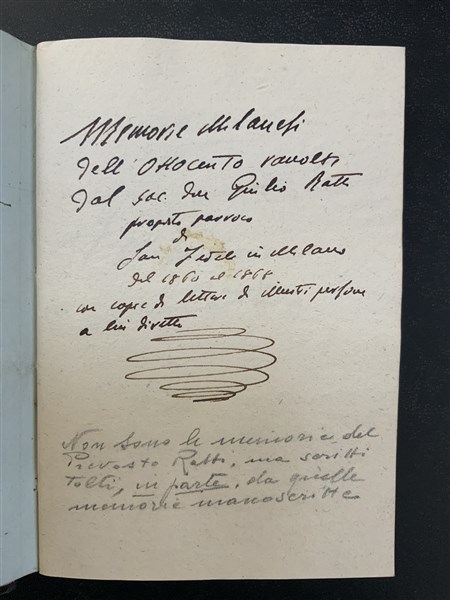 Memorie Milanesi
dell'Ottocento raccolti
dal sac. don Giulio Ratti
proposto parroco
di
San Fedele in Milano
dal 1860 al 1868
con copie di lettere di illustri persone
a lui dirette
Non sono le memorie del
Prevosto Ratti, ma scritti
tolti, in parte, da quelle
memorie manoscritte